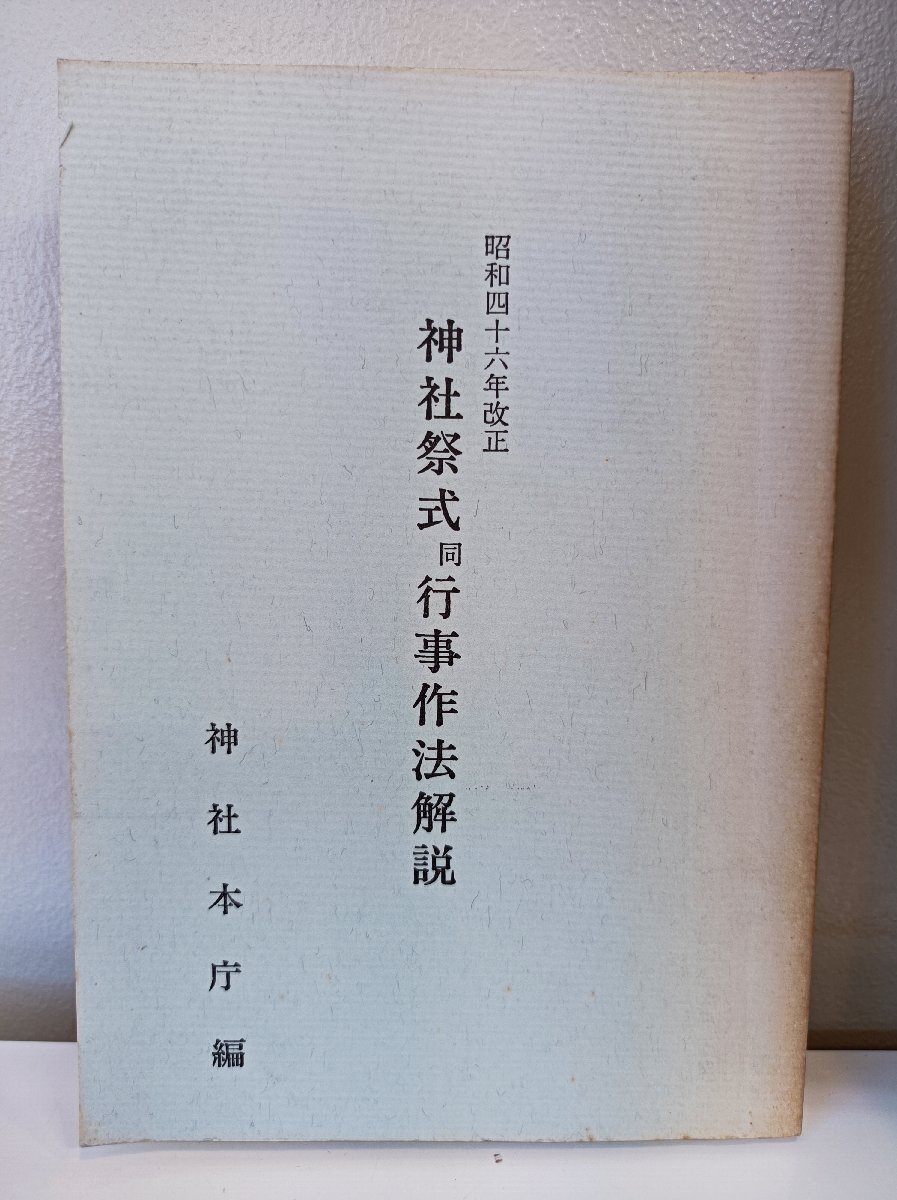 昭和四十六年改正
神社祭式同行事作法解説
神社本庁編